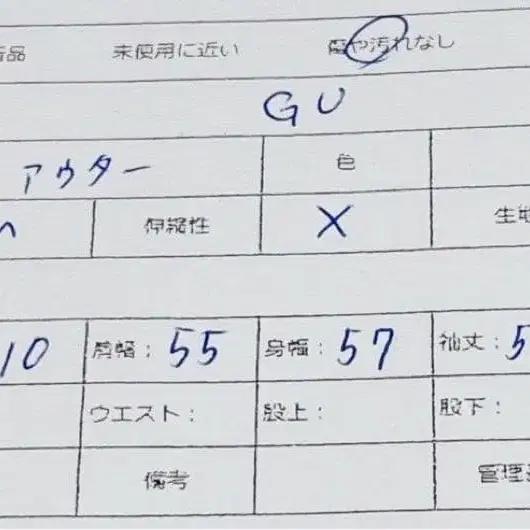 品 未使用に近い 傷や汚れなし
GU
アウター 色
伸縮性 X 生地
10 肩幅： 55 身幅： 57 袖丈： 5
ウエスト： 股上： 股下：
備考 管理